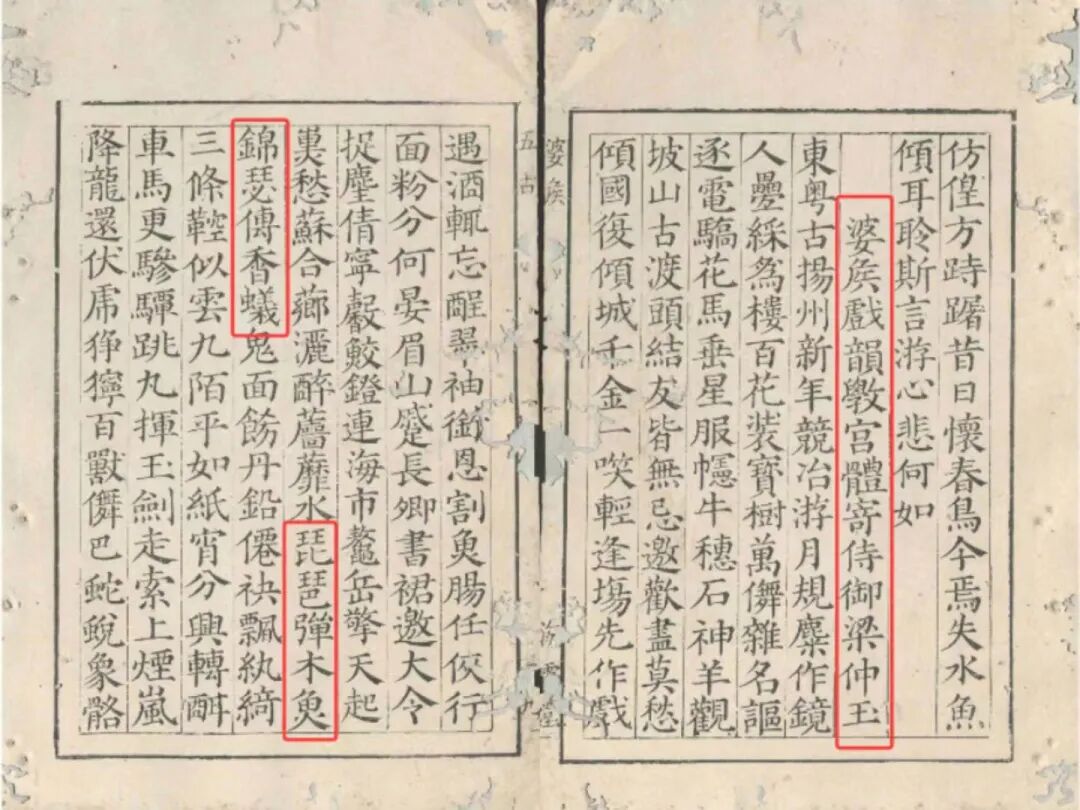 仿偟方跱躇昔日懷春鳥今焉失水魚
傾耳聆斯言游心悲何如
婆矦戲韻斆宮體寄侍御梁仲玉
東粤古揚州新年競冶游月規麋作鏡
人疊綵爲樓百花裝寶樹萬儛雜名謳
逐電驕花馬垂星服幰牛穗石神羊觀
坡山古渡頭結友皆無忌邀歡盡莫愁
傾國復傾城千金一咲輕逢塲先作戲
婆矦
五古
遇酒輒忘酲翠袖銜恩割魚腸任俠行
面粉分何晏眉山蹙長卿書裙邀大令
捉麈倩寧馨鮫鐙連海市鰲岳擎天起
裛愁蘇合薌灑醉薔蘼水琵琶彈木魚
錦瑟傳香蟻鬼面飾丹鉛僊袂飄紈綺
三條鞚似雲九陌平如紙宵分興轉酣
車馬更驂驔跳丸揮玉劍走索上煙嵐
降龍還伏虎猙獰百獸儛巴蛇蛻象骼